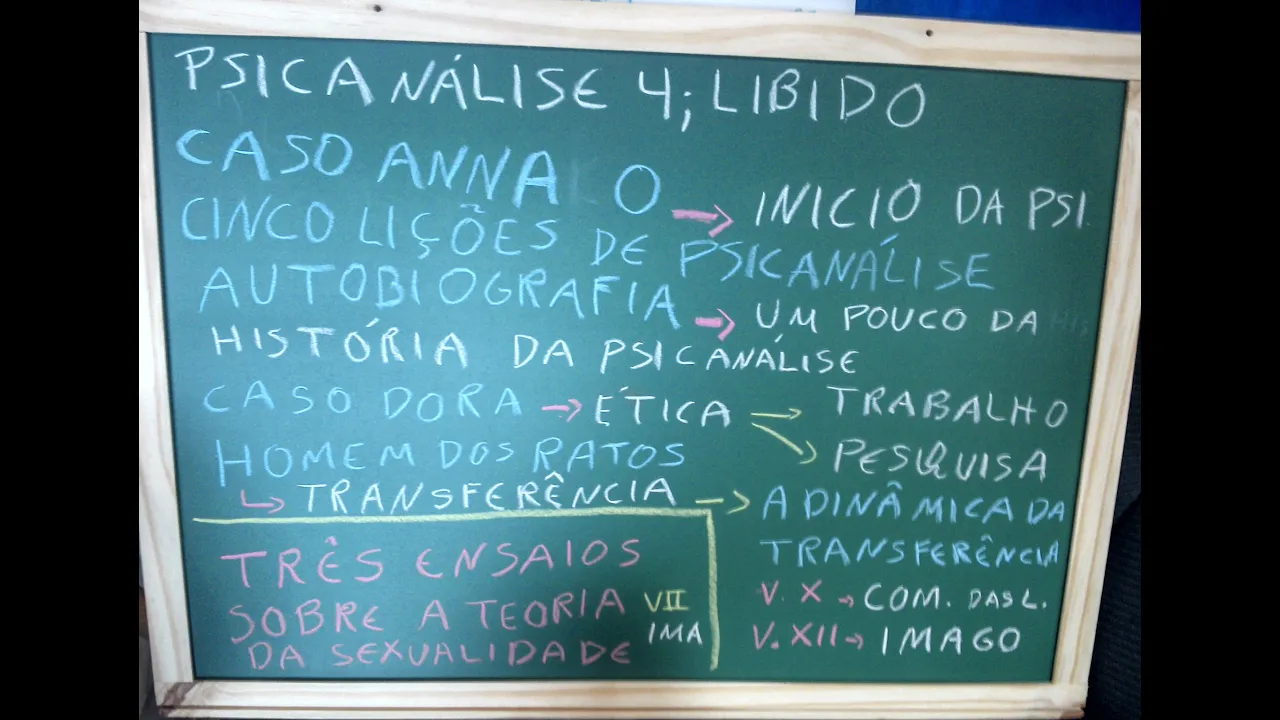 PSICANÁLISE 4; LIBIDO
CASO ANNA O → INICIO DA PSI.
CINCO LIÇÕES DE PSICANÁLISE
AUTOBIOGRAFIA → UM POUCO DA
HISTÓRIA DA PSICANÁLISE
CASO DORA → ÉTICA → TRABALHO
→ PESQUISA
HOMEM DOS RATOS
↳ TRANSFERÊNCIA → A DINÂMICA DA
TRANSFERÊNCIA
V. X → COM. DAS L.
V. XII → IMAGO
TRÊS ENSAIOS
SOBRE A TEORIA VII
DA SEXUALIDADE IMA